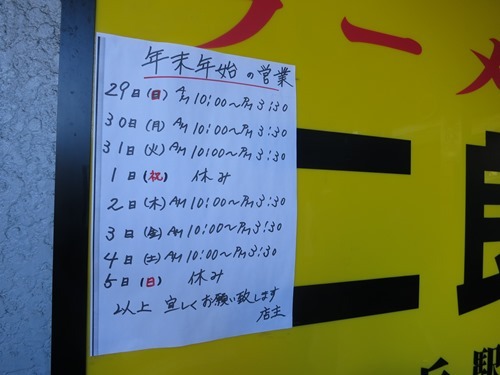 ラーメ
二郎
駅
年末年始の営業
29日(日) AM10:00~PM3:30
30日(月) AM10:00~PM3:30
31日(火) AM10:00~PM3:30
1日(祝) 休み
2日(木) AM10:00~PM3:30
3日(金) AM10:00~PM3:30
4日(土) AM10:00~PM3:30
5日(日) 休み
以上 宜しくお願い致します
店主